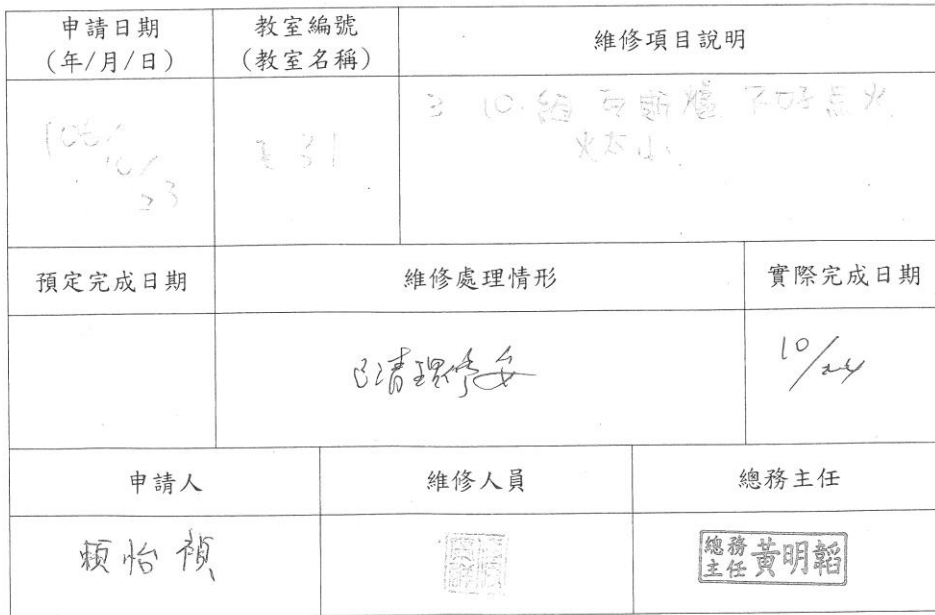 申請日期
(年/月/日)
教室編號
(教室名稱)
維修項目說明
106/10/23
31
3 10 組 瓦斯爐 不好點火
火太小
預定完成日期
維修處理情形
實際完成日期
已清理修妥
10/24
申請人
維修人員
總務主任
賴怡禎
總務主任 黃明韜